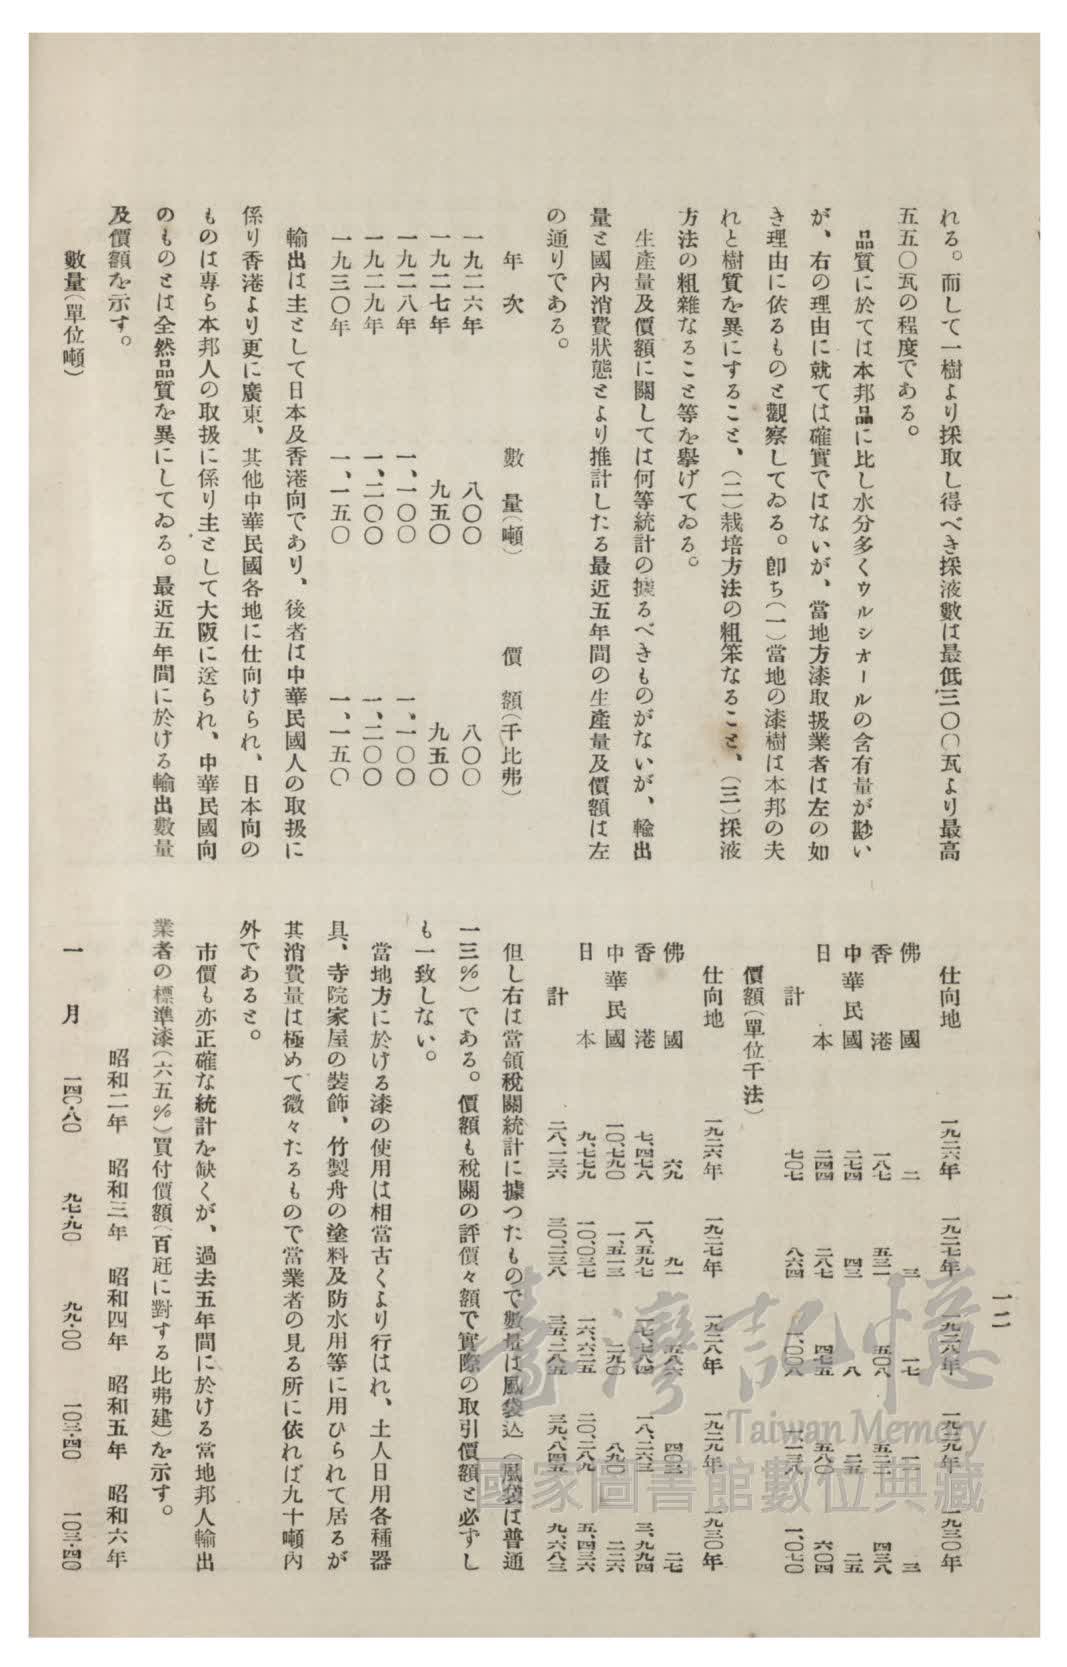 一二
れる。而して一樹より採取し得べき採液數は最低三〇〇瓦より最高
五五〇瓦の程度である。
品質に於ては本邦品に比し水分多くウルシオールの含有量が尠い
が、右の理由に就ては確實ではないが、當地方漆取扱業者は左の如
き理由に依るものと觀察してゐる。卽ち(一)當地の漆樹は本邦の夫
れと樹質を異にすること、(二)栽培方法の粗笨なること、(三)採液
方法の粗雜なること等を擧げてゐる。
生產量及價額に關しては何等統計の據るべきものがないが、輸出
量と國內消費狀態とより推計したる最近五年間の生產量及價額は左
の通りである。
年次 數量(噸) 價額(千比弗)
一九二六年 八〇〇 八〇〇
一九二七年 九五〇 九五〇
一九二八年 一、一〇〇 一、一〇〇
一九二九年 一、二〇〇 一、二〇〇
一九三〇年 一、一五〇 一、一五〇
輸出は主として日本及香港向であり、後者は中華民國人の取扱に
係り香港より更に廣東、其他中華民國各地に仕向けられ、日本向の
ものは專ら本邦人の取扱に係り主として大阪に送られ、中華民國向
のものとは全然品質を異にしてゐる。最近五年間に於ける輸出數量
及價額を示す。
數量(單位噸)
仕向地 一九二六年 一九二七年 一九二八年 一九二九年 一九三〇年
佛國 二 三 一七 一一 三
香港 一八七 五三一 五〇八 五二二 四三八
中華民國 二七四 四三 八 二五 二五
日本 二四四 二八七 四七五 五八〇 六〇四
計 七〇七 八六四 一、〇〇八 一、一三八 一、〇七〇
價額(單位千法)
仕向地 一九二六年 一九二七年 一九二八年 一九二九年 一九三〇年
佛國 六九 九一 五八六 四〇三 二七
香港 七、四七八 一八、五九七 一七、七八四 一八、二六三 三、九九四
中華民國 一〇、七九〇 一、五一三 二九〇 八九〇 二二六
日本 九、七七九 一〇、〇三七 一六、六二五 二〇、二八九 五、四三六
計 二八、一三六 三〇、二三八 三五、二八五 三九、八四五 九、六八三
但し右は當領稅關統計に據つたもので數量は風袋込(風袋は普通
一三%)である。價額も稅關の評價々額で實際の取引價額と必ずし
も一致しない。
當地方に於ける漆の使用は相當古くより行はれ、土人日用各種器
具、寺院家屋の裝飾、竹製舟の塗料及防水用等に用ひられて居るが
其消費量は極めて微々たるもので當業者の見る所に依れば九十噸內
外であると。
市價も亦正確な統計を缺くが、過去五年間に於ける當地邦人輸出
業者の標準漆(六五%)買付價額(百瓩に對する比弗建)を示す。
昭和二年 昭和三年 昭和四年 昭和五年 昭和六年
一月 一四〇・八〇 九七・九〇 九九・〇〇 一〇三・四〇 一〇三・四〇
臺灣記憶
Taiwan Memory
國家圖書館數位典藏